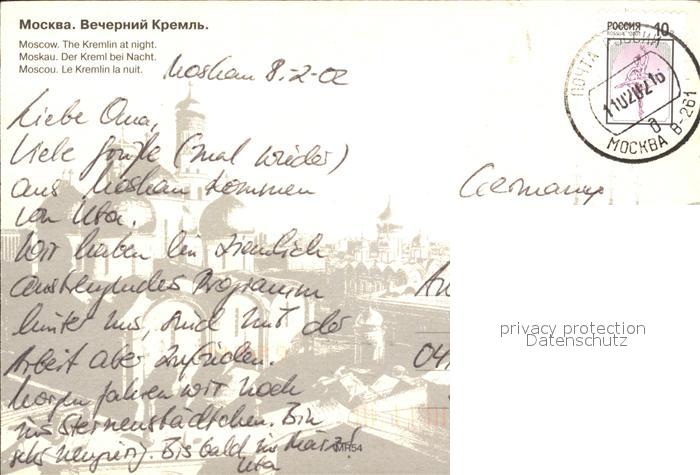 Москва. Вечерний Кремль.
Moscow. The Kremlin at night.
Moskau. Der Kreml bei Nacht.
Moscou. Le Kremlin la nuit.
Moskau 8.2-02
Liebe Oma,
Viele Grüße (mal wieder)
aus Moskau kommen
von Uta.
Wir haben ein ziemlich
anstrengendes Programm
hinter uns, sind mit der
Arbeit aber zufrieden.
Morgen fahren wir noch
ins Sternenstädtchen. Bin
sehr neugierig. Bis bald im März!
Uta
MR54
РОССИЯ 10
ПОЧТА РОССИИ
11020216
МОСКВА В-261
Germany
An
04
privacy protection
Datenschutz